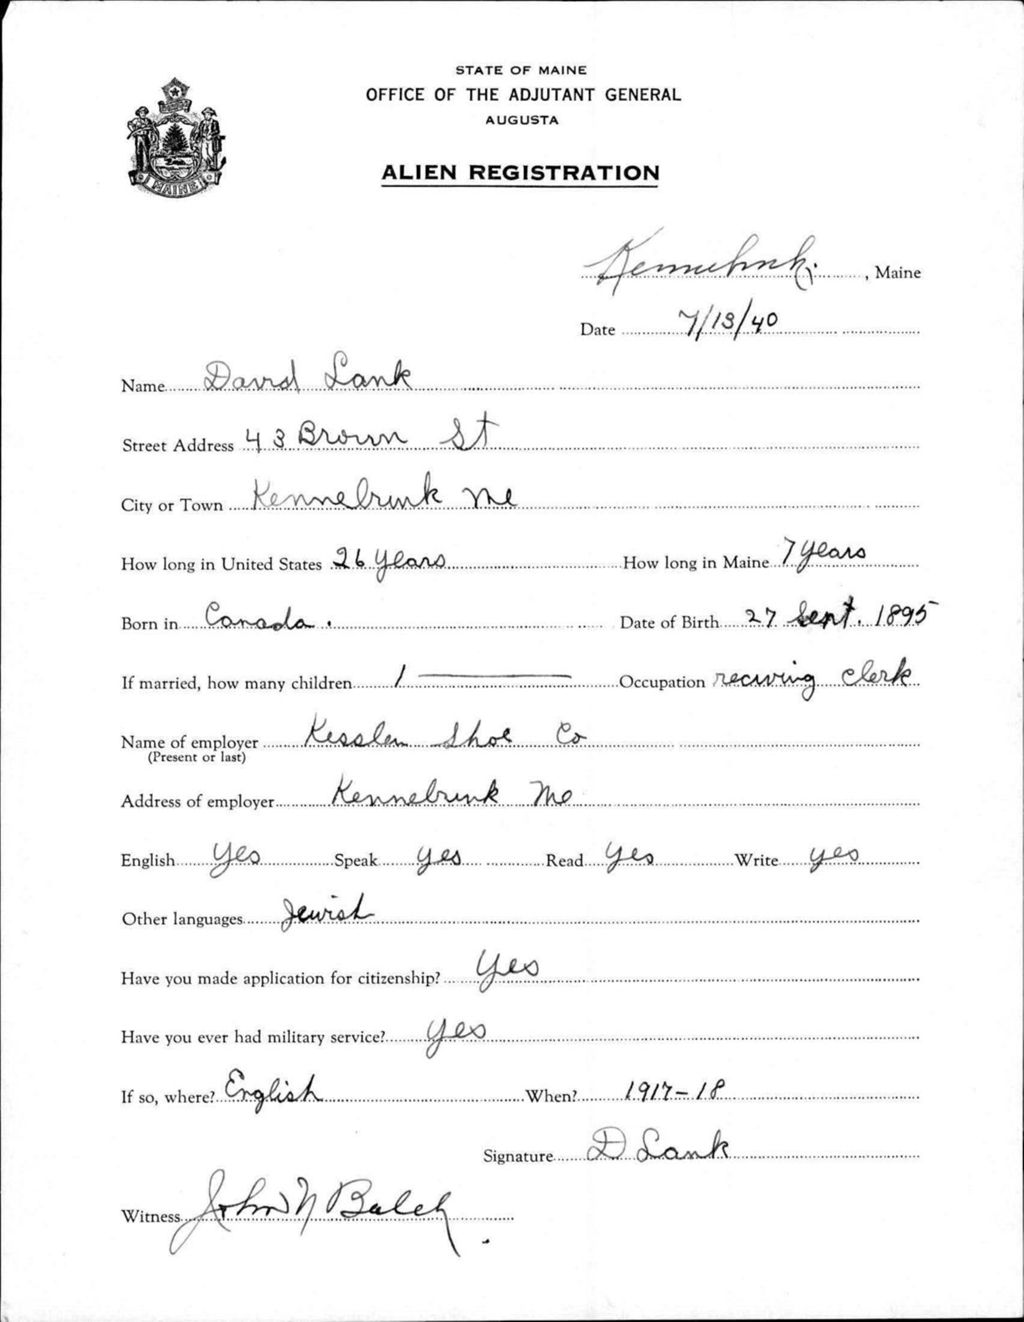 STATE OF MAINE
OFFICE OF THE ADJUTANT GENERAL
AUGUSTA
ALIEN REGISTRATION
MAINE
Kennebunk, Maine
Date 7/13/40
Name David Lank
Street Address 43 Brown St
City or Town Kennebunk Me
How long in United States 26 years How long in Maine 7 years
Born in Canada. Date of Birth 27 Sept. 1895
If married, how many children 1 Occupation reciving clerk
Name of employer Kesslen Shoe Co
(Present or last)
Address of employer Kennebunk Me
English Yes Speak yes Read yes Write yes
Other languages Jewish
Have you made application for citizenship? Yes
Have you ever had military service? Yes
If so, where? English When? 1917-18
Signature D Lank
Witness John N Balch